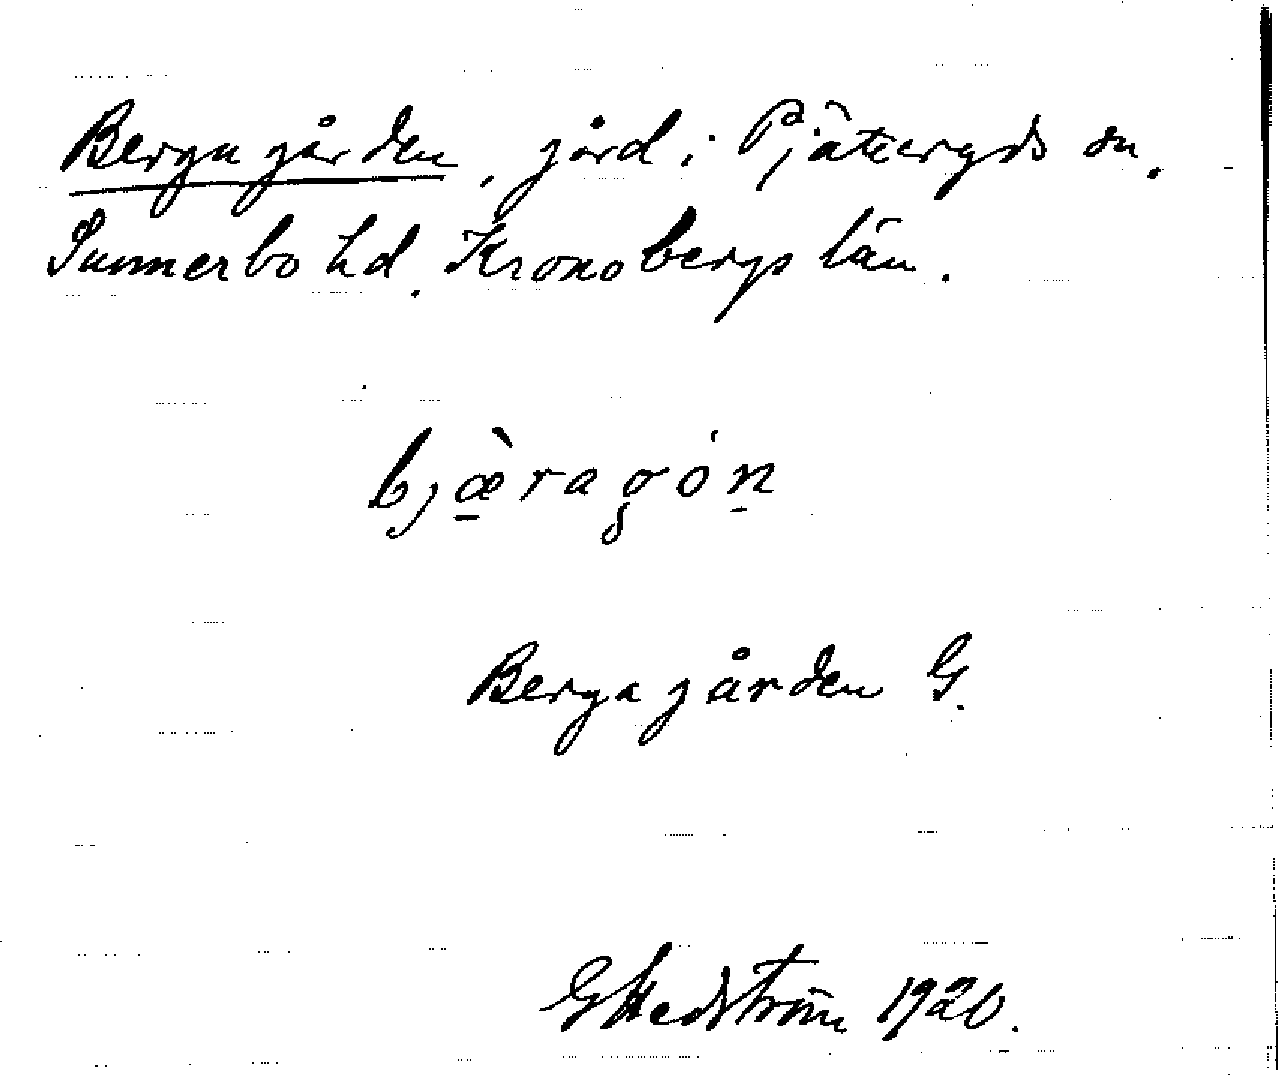 Bergagården, gård i Pjätteryds sn.
Sunnerbo hd. Kronobergs län.
bjæ̀ragón
Bergagården G.
G Hedström 1920.